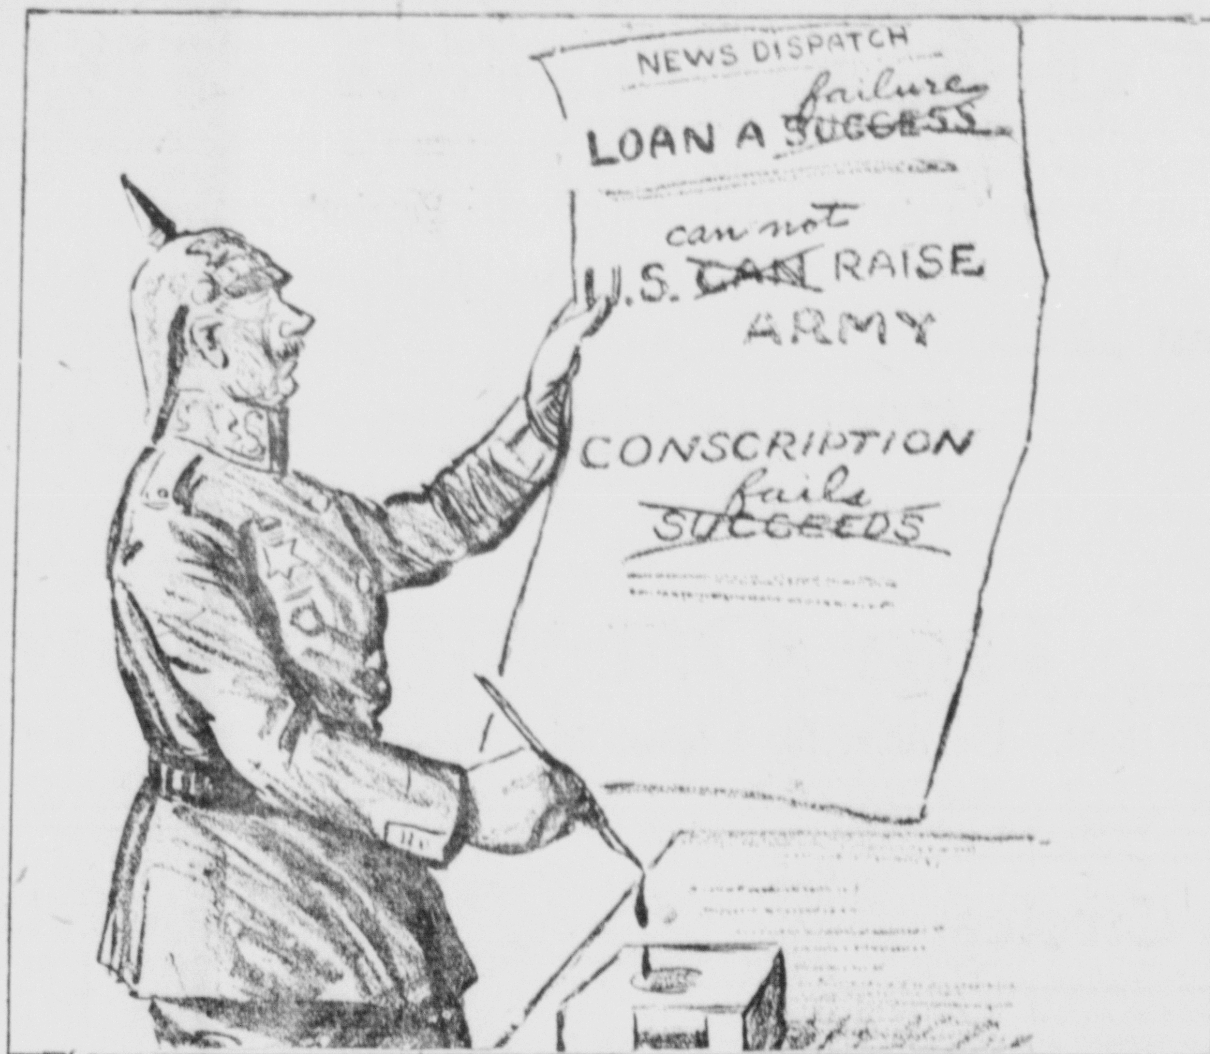 NEWS DISPATCH
failure
LOAN A SUCCESS
can not
U.S. CAN RAISE
ARMY
CONSCRIPTION
fails
SUCCEEDS